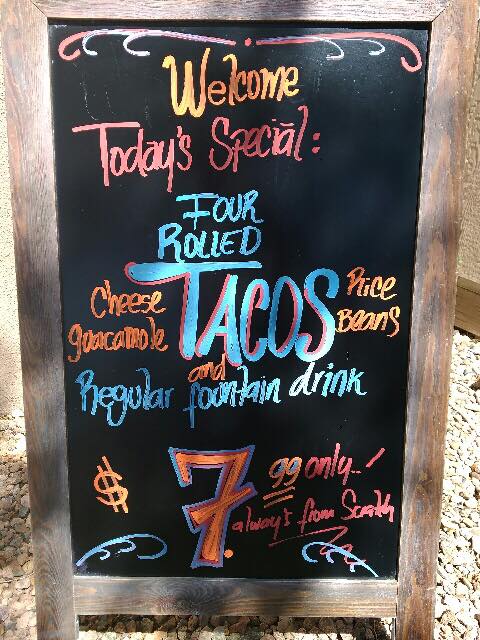 Welcome
Today's Special:
FOUR
ROLLED
TACOS
Cheese
guacamole
Rice
BEANS
and
Regular fountain drink
$7.99 only..!
always from Scratch